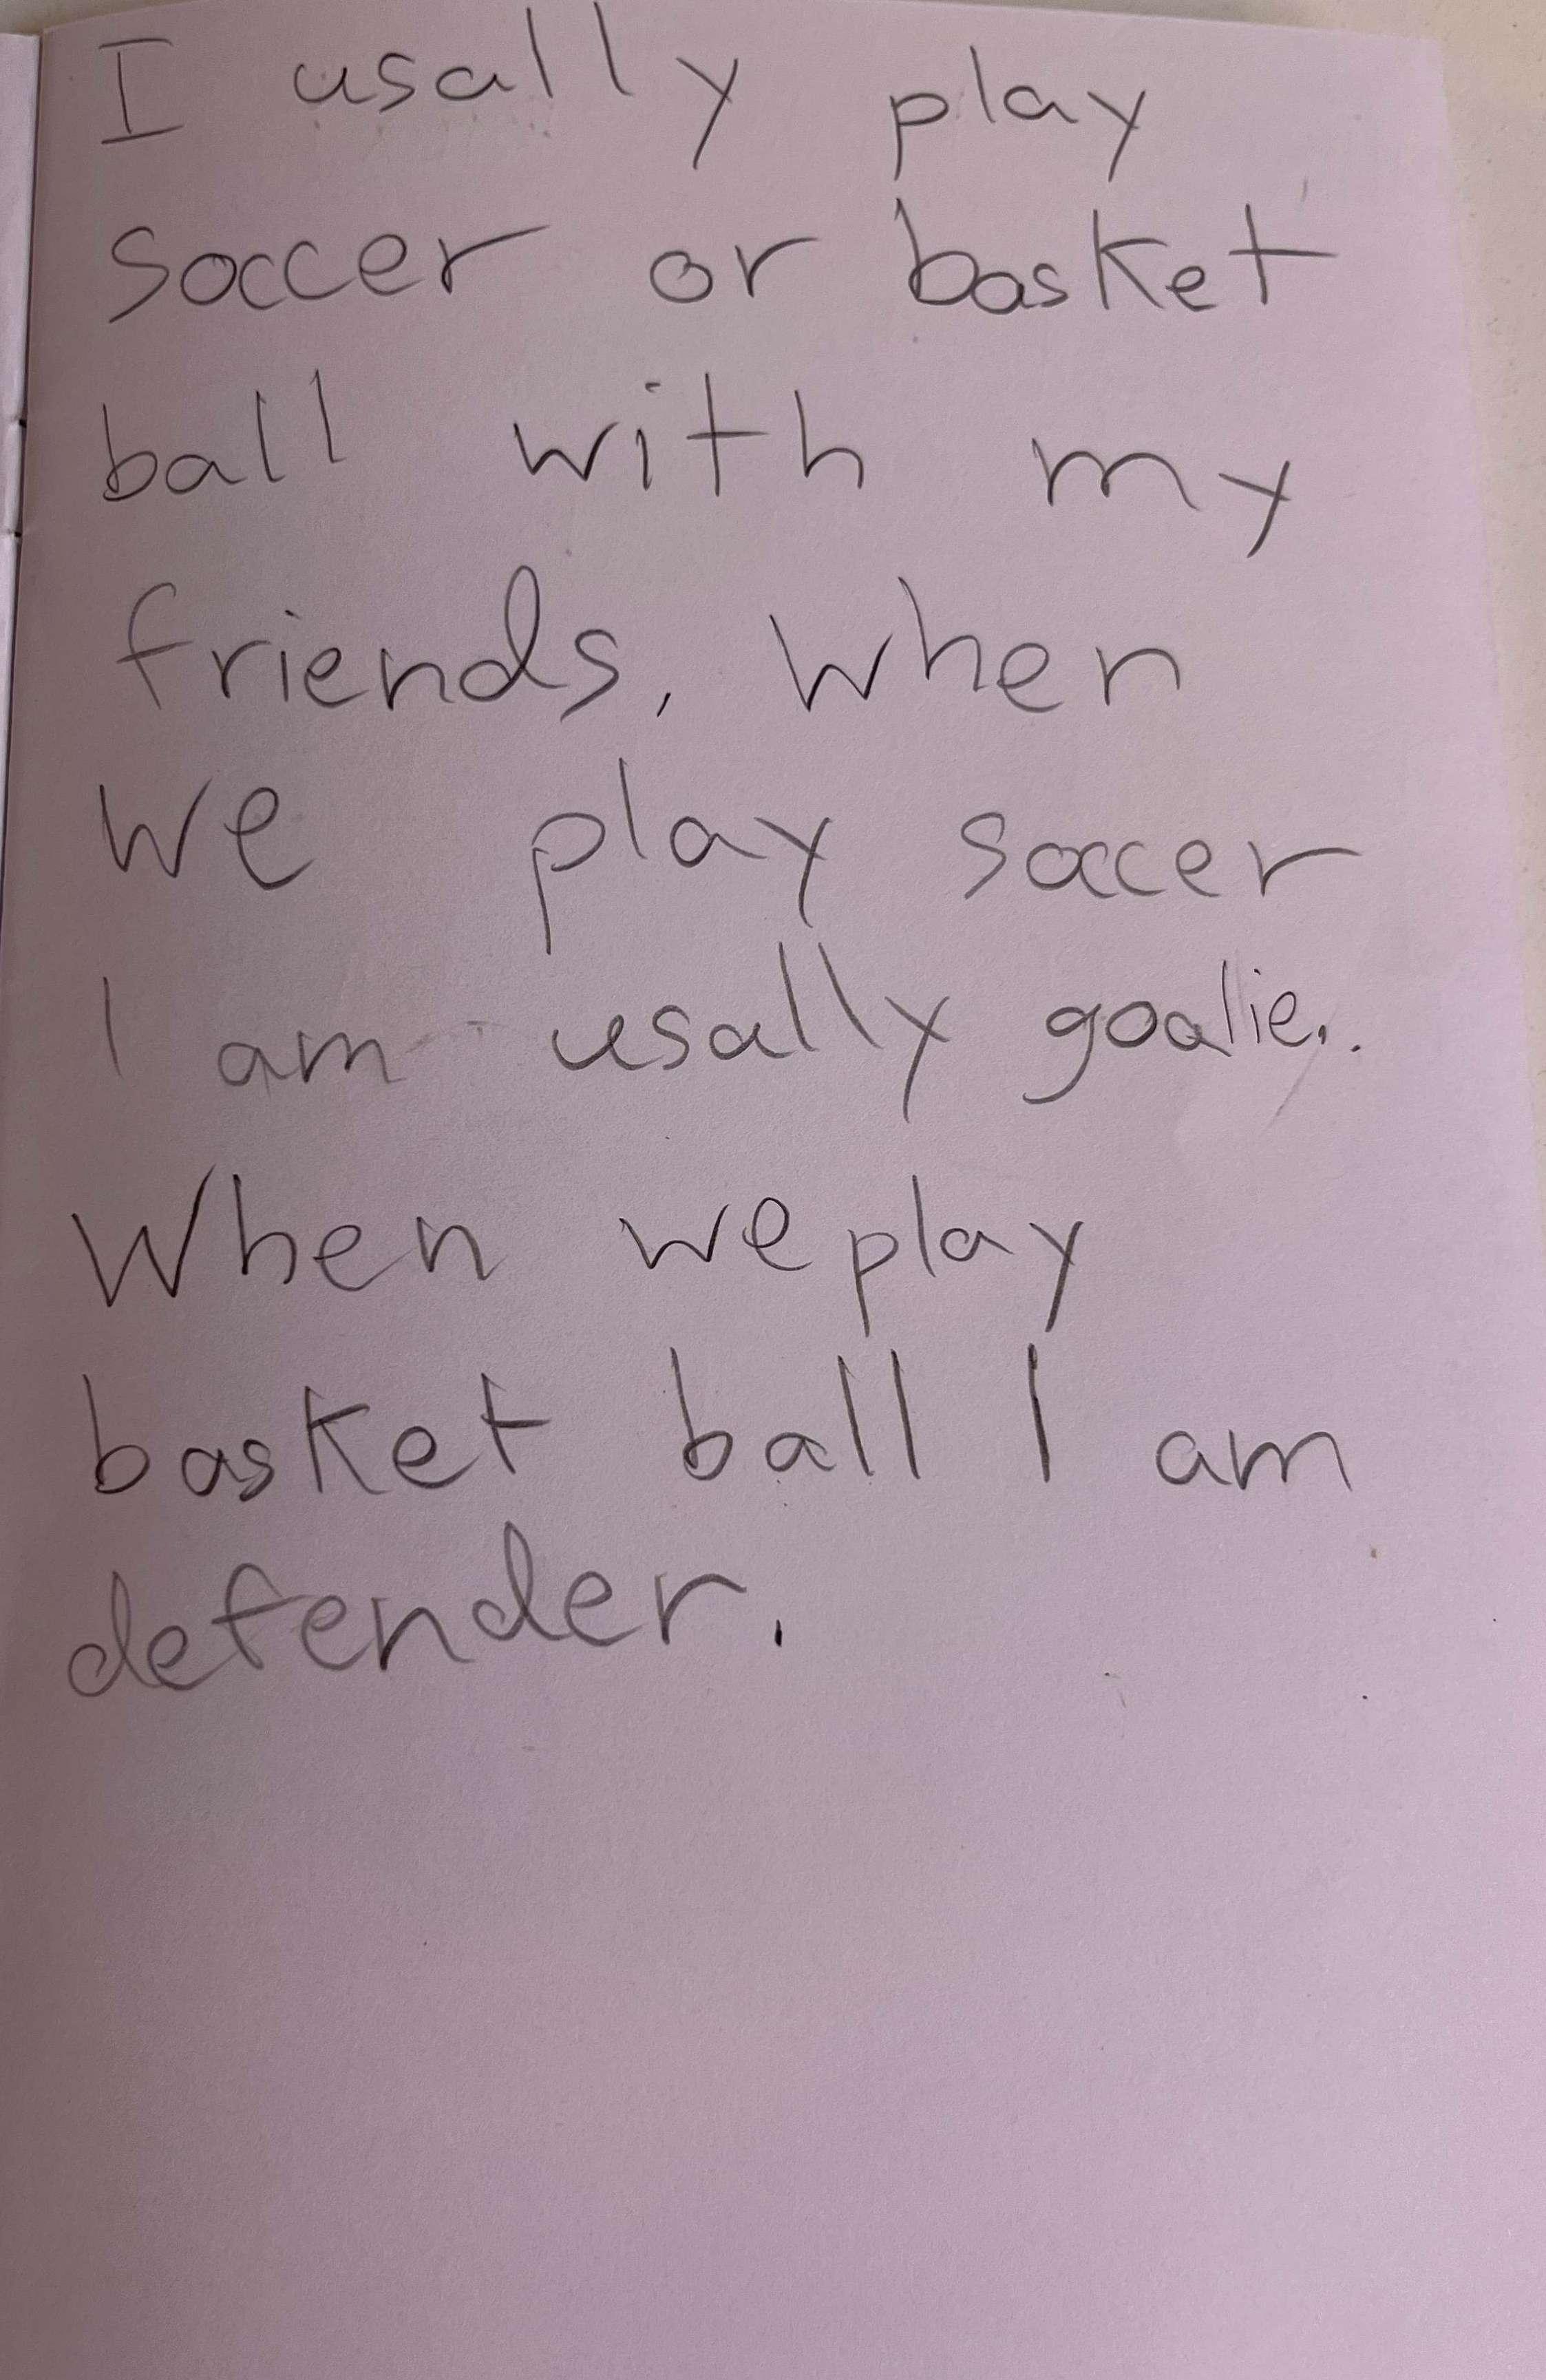 I usally play
soccer or basket
ball with my
friends. When
we play soccer
I am usally goalie..
When we play
basket ball I am
defender.